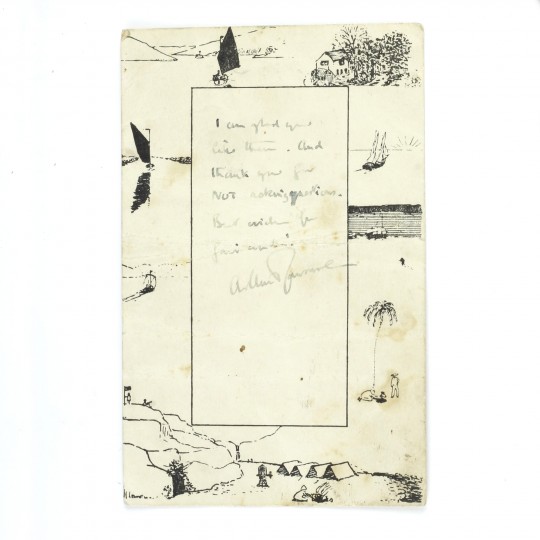 I am glad you
like them. And
thank you for
NOT asking questions.
Best wishes for
Arthur Ransome